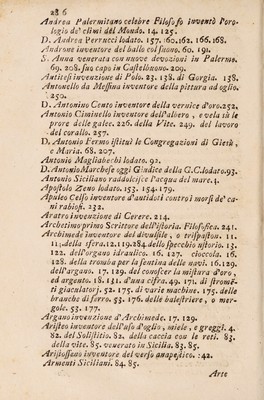 286
Andrea Palermitano celebre Filosofo inventò l'oro-
logio de' climi del Mondo. 14. 125.
D. Andrea Perrucci lodato. 157. 60. 162. 166. 168.
Androne inventore del ballo col suono. 60. 191.
S. Anna venerata con nuove devozioni in Palermo.
69. 208. suo capo in Castelbuono. 209.
Antitesi invenzione di Polo. 23. 138. di Gorgia. 138.
Antonello da Messina inventore della pittura ad oglio.
250.
D. Antonino Cento inventore della vernice d'oro. 252.
Antonio Ciminello inventore dell'albero, e vela in le
prore delle galee. 226. della Vite. 249. del lavoro
del corallo. 257.
D. Antonio Fermo istituì le Congregazioni di Giesù,
e Maria. 68. 207.
Antonio Magliabechi lodato. 92.
D. Antonio Marchese oggi Giudice della G.C. lodato. 93.
Antonio Siciliano raddolcisce l'acqua del mare. 4.
Apostolo Zeno lodato. 153. 154. 179.
Apuleo Celso inventore d'antidoti contro i morsi de' ca-
ni rabiosi. 232.
Aratro invenzione di Cerere. 214.
Archetimo primo Scrittore dell'istoria. Filosofica. 241.
Archimede inventore del divulsile, o trispaston. 11.
11. della sfera. 12. 119. 284. dello specchio ustorio. 13.
122. dell'organo idraulico. 16. 127. cioccola. 16.
128. della tromba per la sentina delle navi. 16. 129.
dell'argano. 17. 129. del conoscer la mistura d'oro,
ed argento. 18. 131. d'una cifra. 49. 171. di stromē-
ti giaculatorj. 52. 175. di varie machine. 175. delle
branche di ferro. 53. 176. delle balestriere, o mer-
gole. 53. 177.
Argano invenzione d'Archimede. 17. 129.
Aristeo inventore dell'uso d'oglio, miele, e greggi. 4.
82. del Solistitio. 82. della caccia con le reti. 83.
della vite. 85. venerato in Sicilia. 83. 85.
Aristosseno inventore del verso anapestico. 142.
Armenti Siciliani. 84. 85.
Arte